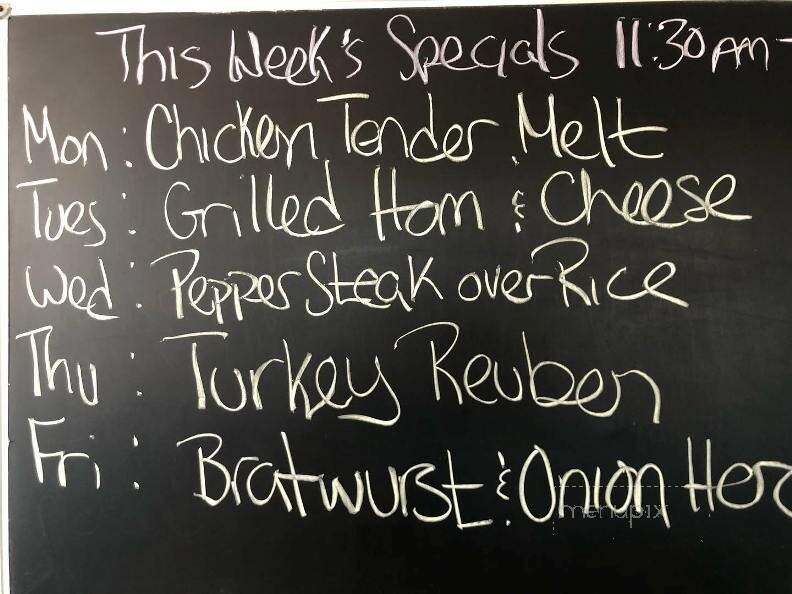 This Week's Specials 11:30am-
Mon: Chicken Tender Melt
Tues: Grilled Ham & Cheese
Wed: Pepper Steak over Rice
Thu: Turkey Reuben
Fri: Bratwurst & Onion Hero
menupix